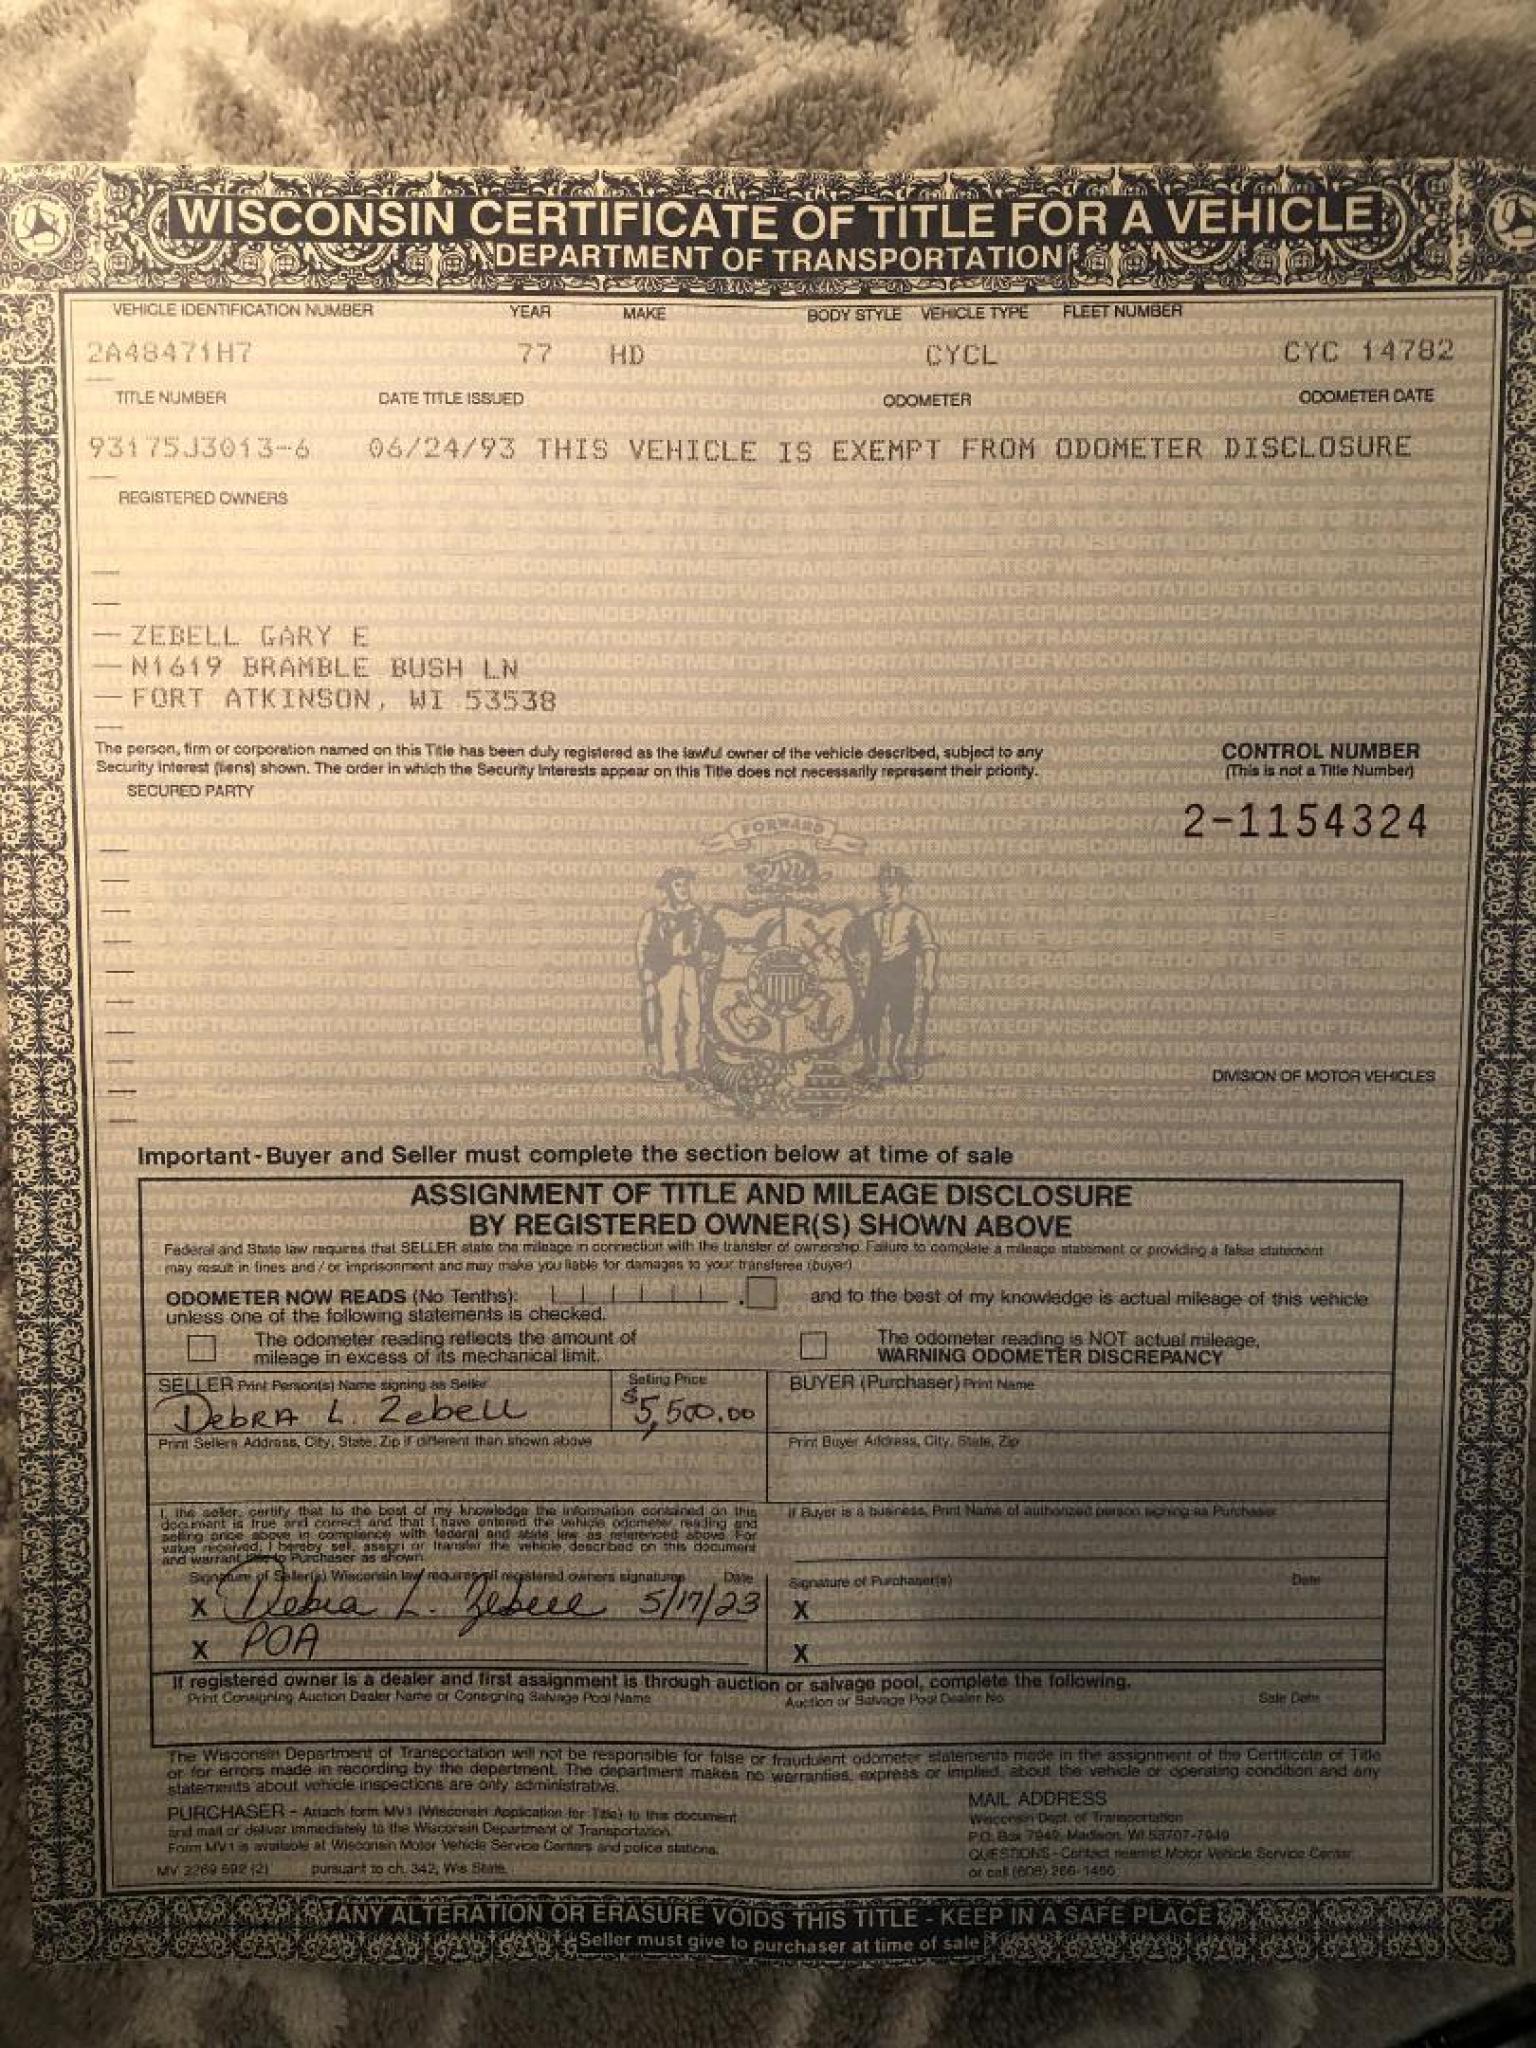 WISCONSIN CERTIFICATE OF TITLE FOR A VEHICLE
DEPARTMENT OF TRANSPORTATION
VEHICLE IDENTIFICATION NUMBER YEAR MAKE BODY STYLE VEHICLE TYPE FLEET NUMBER
2A48471H7 77 HD CYCL CYC 14782
TITLE NUMBER DATE TITLE ISSUED ODOMETER ODOMETER DATE
93175J3013-6 06/24/93 THIS VEHICLE IS EXEMPT FROM ODOMETER DISCLOSURE
REGISTERED OWNERS
ZEBELL GARY E
N1619 BRAMBLE BUSH LN
FORT ATKINSON, WI 53538
The person, firm or corporation named on this Title has been duly registered as the lawful owner of the vehicle described, subject to any
Security Interest (liens) shown. The order in which the Security Interests appear on this Title does not necessarily represent their priority.
CONTROL NUMBER
(This is not a Title Number)
SECURED PARTY
2-1154324
FORWARD
DIVISION OF MOTOR VEHICLES
Important - Buyer and Seller must complete the section below at time of sale
ASSIGNMENT OF TITLE AND MILEAGE DISCLOSURE
BY REGISTERED OWNER(S) SHOWN ABOVE
Federal and State law requires that SELLER state the mileage in connection with the transfer of ownership. Failure to complete a mileage statement or providing a false statement
may result in fines and / or imprisonment and may make you liable for damages to your transferee (buyer)
ODOMETER NOW READS (No Tenths): . and to the best of my knowledge is actual mileage of this vehicle
unless one of the following statements is checked.
The odometer reading reflects the amount of
mileage in excess of its mechanical limit.
The odometer reading is NOT actual mileage,
WARNING ODOMETER DISCREPANCY
SELLER Print Person(s) Name signing as Seller Selling Price BUYER (Purchaser) Print Name
Debra L. Zebell $5,500.00
Print Sellers Address, City, State, Zip if different than shown above Print Buyer Address, City, State, Zip
I, the seller, certify that to the best of my knowledge the information contained on this
document is true and correct and that I have entered the vehicle odometer reading and
selling price above in compliance with federal and state law as referenced above. For
value received, I hereby sell, assign or transfer the vehicle described on this document
and warrant title to Purchaser as shown
If Buyer is a business, Print Name of authorized person signing as Purchaser
Signature of Seller(s) Wisconsin law requires all registered owners signatures Date Signature of Purchaser(s) Date
X Debra L. Zebell 5/17/23 X
X POA X
If registered owner is a dealer and first assignment is through auction or salvage pool, complete the following.
Print Consigning Auction Dealer Name or Consigning Salvage Pool Name Auction or Salvage Pool Dealer No Sale Date
The Wisconsin Department of Transportation will not be responsible for false or fraudulent odometer statements made in the assignment of the Certificate of Title
or for errors made in recording by the department. The department makes no warranties, express or implied, about the vehicle or operating condition and any
statements about vehicle inspections are only administrative.
PURCHASER - Attach form MV1 (Wisconsin Application for Title) to this document
and mail or deliver immediately to the Wisconsin Department of Transportation.
Form MV1 is available at Wisconsin Motor Vehicle Service Centers and police stations.
MV 2269 592 (2) pursuant to ch. 342, Wis State.
MAIL ADDRESS
Wisconsin Dept. of Transportation
P.O. Box 7949, Madison, WI 53707-7949
QUESTIONS - Contact nearest Motor Vehicle Service Center
or call (608) 266-1466
ANY ALTERATION OR ERASURE VOIDS THIS TITLE - KEEP IN A SAFE PLACE
Seller must give to purchaser at time of sale